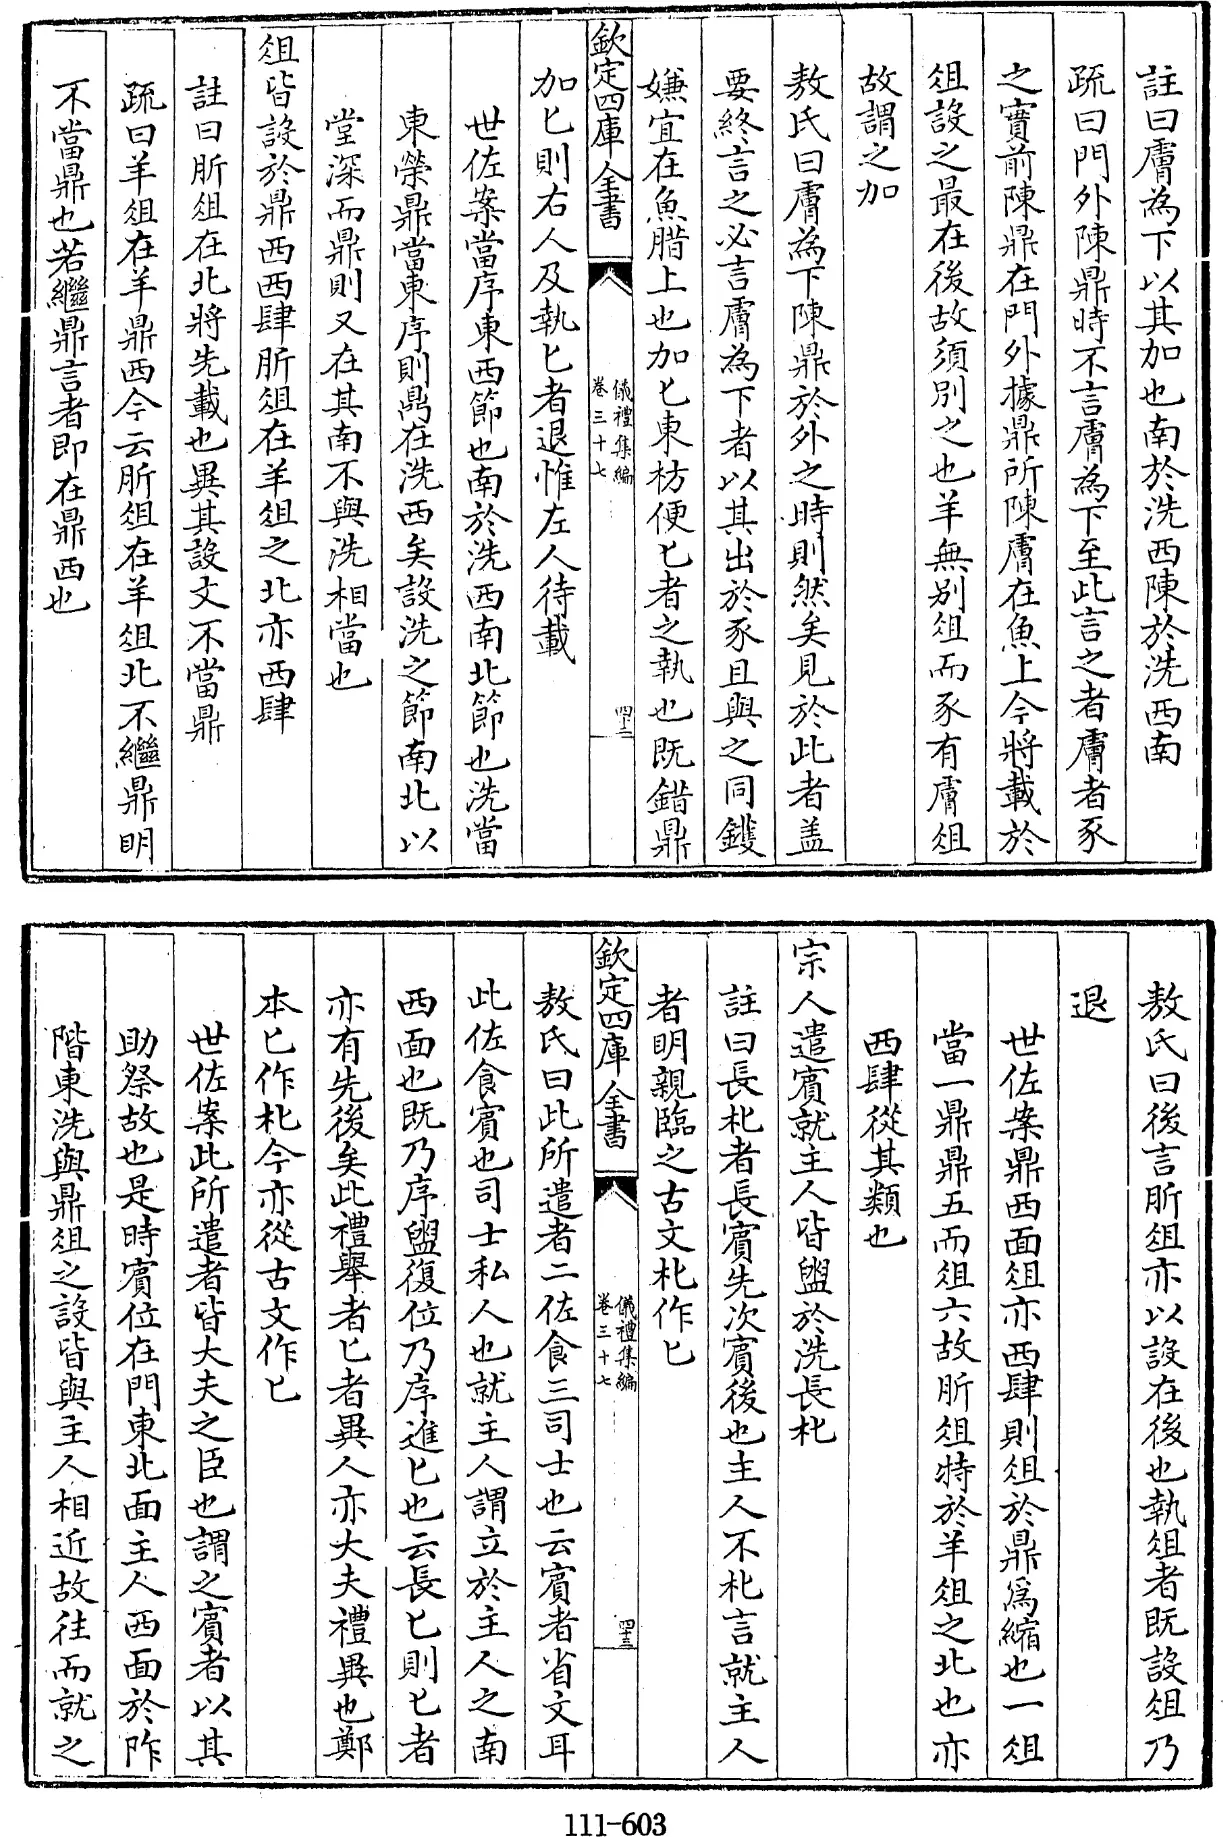 註曰膚為下以其加也南於洗西陳於洗西南
疏曰門外陳鼎時不言膚為下至此言之者膚者豕
之實前陳鼎在門外據鼎所陳膚在魚上今將載於
俎設之最在後故須別之也羊無別俎而豕有膚俎
故謂之加
敖氏曰膚為下陳鼎於外之時則然矣見於此者盖
要終言之必言膚為下者以其出於豕且與之同鑊
嫌宜在魚腊上也加匕東枋便匕者之執也既錯鼎
欽定四庫全書
儀禮集編
卷三十七
四十二
加匕則右人及執匕者退惟左人待載
世佐案當序東西節也南於洗西南北節也洗當
東榮鼎當東序則鼎在洗西矣設洗之節南北以
堂深而鼎則又在其南不與洗相當也
俎皆設於鼎西西肆肵俎在羊俎之北亦西肆
註曰肵俎在北將先載也異其設文不當鼎
疏曰羊俎在羊鼎西今云肵俎在羊俎北不繼鼎明
不當鼎也若繼鼎言者即在鼎西也
敖氏曰後言肵俎亦以設在後也執俎者既設俎乃
退
世佐案鼎西面俎亦西肆則俎於鼎爲縮也一俎
當一鼎鼎五而俎六故肵俎特於羊俎之北也亦
西肆從其類也
宗人遣賓就主人皆盥於洗長朼
註曰長朼者長賓先次賓後也主人不朼言就主人
者明親臨之古文朼作匕
欽定四庫全書
儀禮集編
卷三十七
四十三
敖氏曰此所遣者二佐食三司士也云賓者省文耳
此佐食賓也司士私人也就主人謂立於主人之南
西面也既乃序盥復位乃序進匕也云長匕則匕者
亦有先後矣此禮舉者匕者異人亦大夫禮異也鄭
本匕作朼今亦從古文作匕
世佐案此所遣者皆大夫之臣也謂之賓者以其
助祭故也是時賓位在門東北面主人西面於阼
階東洗與鼎俎之設皆與主人相近故往而就之
111-603